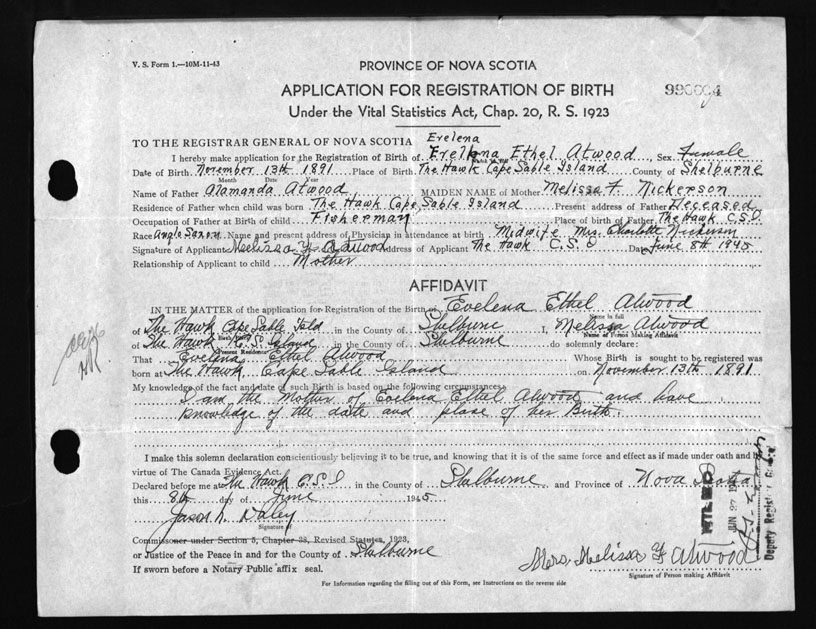 V. S. Form 1.—10M-11-43
PROVINCE OF NOVA SCOTIA
APPLICATION FOR REGISTRATION OF BIRTH
Under the Vital Statistics Act, Chap. 20, R. S. 1923
TO THE REGISTRAR GENERAL OF NOVA SCOTIA
Evelena
I hereby make application for the Registration of Birth of Ethel Atwood, Sex Female
Date of Birth November 13th 1891 Place of Birth The Hawk Cape Sable Island County of Shelburne
Month Date Year
Name of Father Alamanda Atwood MAIDEN NAME of Mother Melissa F. Nickerson
Residence of Father when child was born The Hawk Cape Sable Island Present address of Father Deceased
Occupation of Father at Birth of child Fisherman Place of birth of Father The Hawk C.S.I
Race Anglo Saxon Name and present address of Physician in attendance at birth Midwife Mrs. Charlotte Nickerson
Signature of Applicant Melissa F. Atwood Address of Applicant The Hawk C.S.I Date June 8th 1945
Relationship of Applicant to child Mother
AFFIDAVIT
IN THE MATTER of the application for Registration of the Birth of Evelena Ethel Atwood
Name in full
of The Hawk Cape Sable Isld in the County of Shelburne I, Melissa Atwood
Name of Person Making Affidavit
of The Hawk C.S. Island in the County of Shelburne do solemnly declare:
Present Residence
That Evelena Ethel Atwood Whose Birth is sought to be registered was
born at The Hawk, Cape Sable Island on November 13th 1891
My knowledge of the fact and date of such Birth is based on the following circumstances:
I am the Mother of Evelena Ethel Atwood and have
knowledge of the date and place of her Birth.
I make this solemn declaration conscientiously believing it to be true, and knowing that it is of the same force and effect as if made under oath and by
virtue of The Canada Evidence Act.
Declared before me at The Hawk C.S.I in the County of Shelburne and Province of Nova Scotia
this 8th day of June 1945
Jason N. Daley
Signature of
Commissioner under Section 5, Chapter 38, Revised Statutes, 1923,
or Justice of the Peace in and for the County of Shelburne
If sworn before a Notary Public affix seal.
Mrs. Melissa F Atwood
Signature of Person making Affidavit
For Information regarding the filling out of this Form, see Instructions on the reverse side
FILED
JUN 27
Deputy Registrar